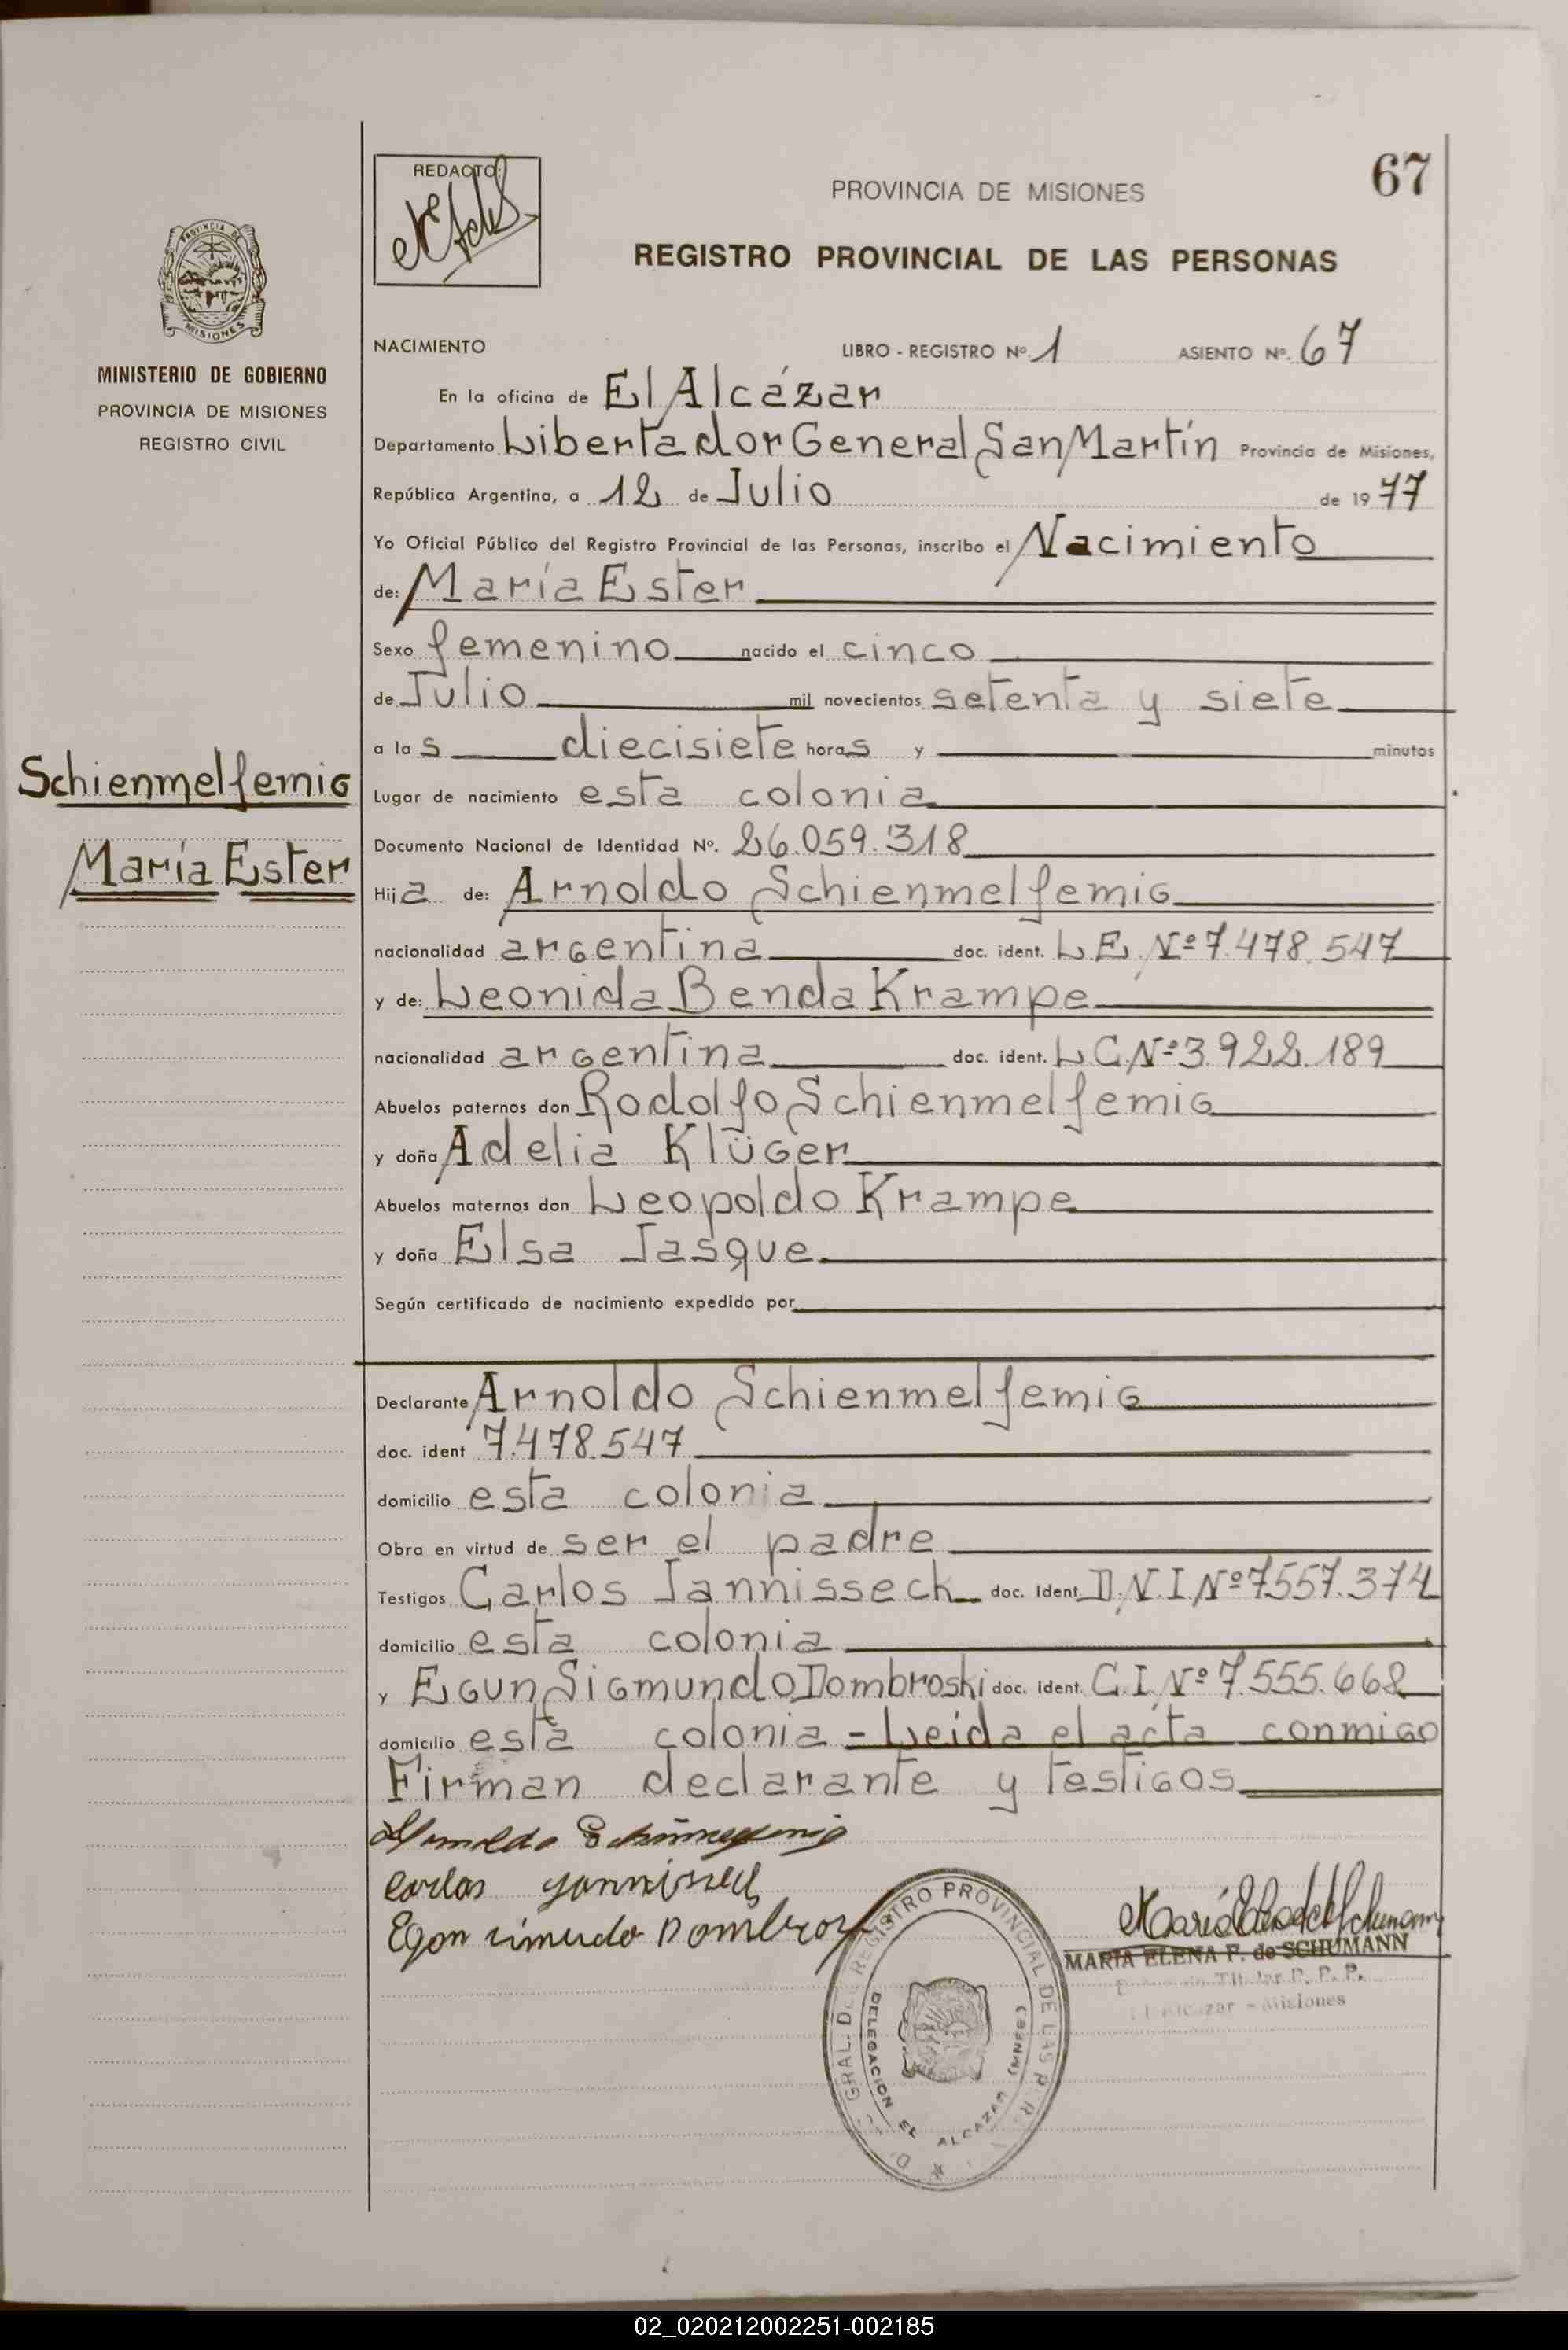 67
REDACTO:
PROVINCIA DE MISIONES
REGISTRO PROVINCIAL DE LAS PERSONAS
PROVINCIA DE
MISIONES
MINISTERIO DE GOBIERNO
PROVINCIA DE MISIONES
REGISTRO CIVIL
NACIMIENTO LIBRO - REGISTRO Nº. 1 ASIENTO Nº. 67
En la oficina de El Alcázar
Departamento Libertador General San Martín Provincia de Misiones,
República Argentina, a 12 de Julio de 1977
Yo Oficial Público del Registro Provincial de las Personas, inscribo el Nacimiento
de: María Ester
Sexo femenino nacido el cinco
de Julio mil novecientos setenta y siete
a las diecisiete horas y minutos
Schienmelfemig
María Ester
Lugar de nacimiento esta colonia
Documento Nacional de Identidad Nº. 26.059.318
Hija de: Arnoldo Schienmelfemig
nacionalidad argentina doc. ident. L.E. Nº 7.478.547
y de: Leonida Benda Krampe
nacionalidad argentina doc. ident. L.C. Nº 3.922.189
Abuelos paternos don Rodolfo Schienmelfemig
y doña Adelia Klüger
Abuelos maternos don Leopoldo Krampe
y doña Elsa Jasque
Según certificado de nacimiento expedido por
Declarante Arnoldo Schienmelfemig
doc. ident 7.478.547
domicilio esta colonia
Obra en virtud de ser el padre
Testigos Carlos Jannisseck doc. Ident. D.N.I. Nº 7557.374
domicilio esta colonia
y Egun Sigmundo Dombroski doc. ident. C.I. Nº 7.555.668
domicilio esta colonia - Leída el acta conmigo
Firman declarante y testigos
Carlos
Egon
MARIA ELENA F. de SCHUMANN
Titular R. P. P.
El Alcazar - Misiones
GRAL. DEL REGISTRO PROVINCIAL DE LAS
DELEGACION EL ALCAZAR (MNES)
02_020212002251-002185